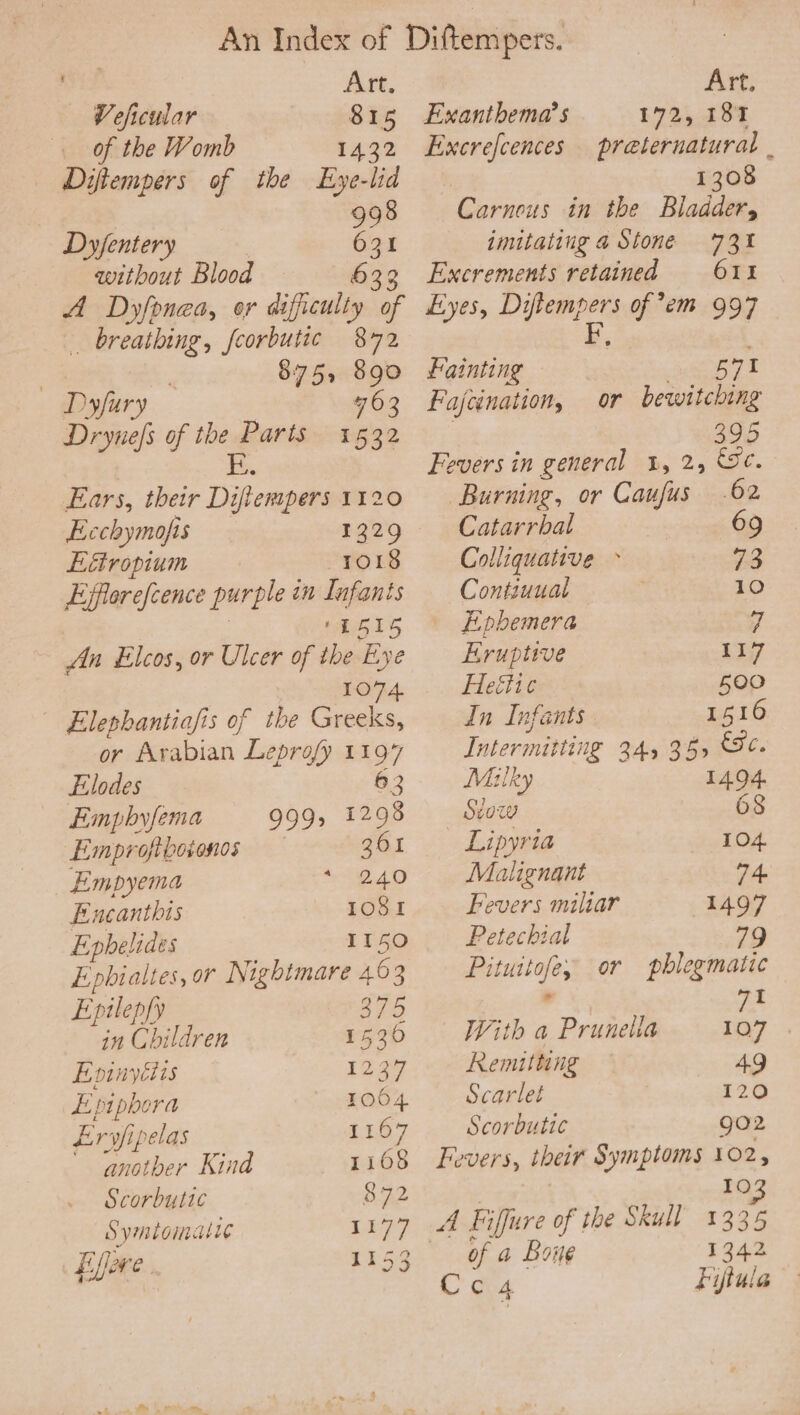 An Index of Diſtempers.
Art.
Veſicular 815
of the Womb 1432
Diſtempers of the Eye-lid
998
Dyſentery 631
without Blood 633
A Dyſpnœa, or difficulty of
breathing, ſcorbutic 872
875, 890
Dyſury 763
Dryneſs of the Parts 1532
E.
Ears, their Diſtempers 1120
Ecchymoſis 1329
Ectropium 1018
Effloreſcence purple in Infants
1515
An Elcos, or Ulcer of the Eye
1074
Elephantiaſis of the Greeks,
or Arabian Leproſy 1197
Elodes 63
Emphyſema 999, 1298
Emproſthotonos 361
Empyema 240
Encanthis 1081
Ephelides 1150
Ephialtes, or Nightmare 463
Epilepſy 375
in Children 1536
Epinyctis 1237
Epiphora 1064
Eryſipelas 1167
another Kind 1168
Scorbutic 872
Symtomatic 1177
Eſſere 1153
Art.
Exanthema's 172, 181
Excreſcences præternatural
1308
Carneus in the Bladder,
imitating a Stone 731
Excrements retained 611
Eyes, Diſtempers of 'em 997
F.
Fainting 571
Faſcination, or bewitching
395
Fevers in general 1, 2, &c.
Burning, or Cauſus 62
Catarrhal 69
Colliquative 73
Continual 10
Ephemera 7
Eruptive 117
Hectic 500
In Infants 1516
Intermitting 34, 35, &c.
Milky 1494
Slow 68
Lipyria 104
Malignant 74
Fevers miliar 1497
Petechial 79
Pituitoſe, or phlegmatic
71
With a Prunella 107
Remitting 49
Scarlet 120
Scorbutic 902
Fevers, their Symptoms 102,
103
A Fiſſure of the Skull 1335
of a Bone 1342
Cc 4 Fiſtula